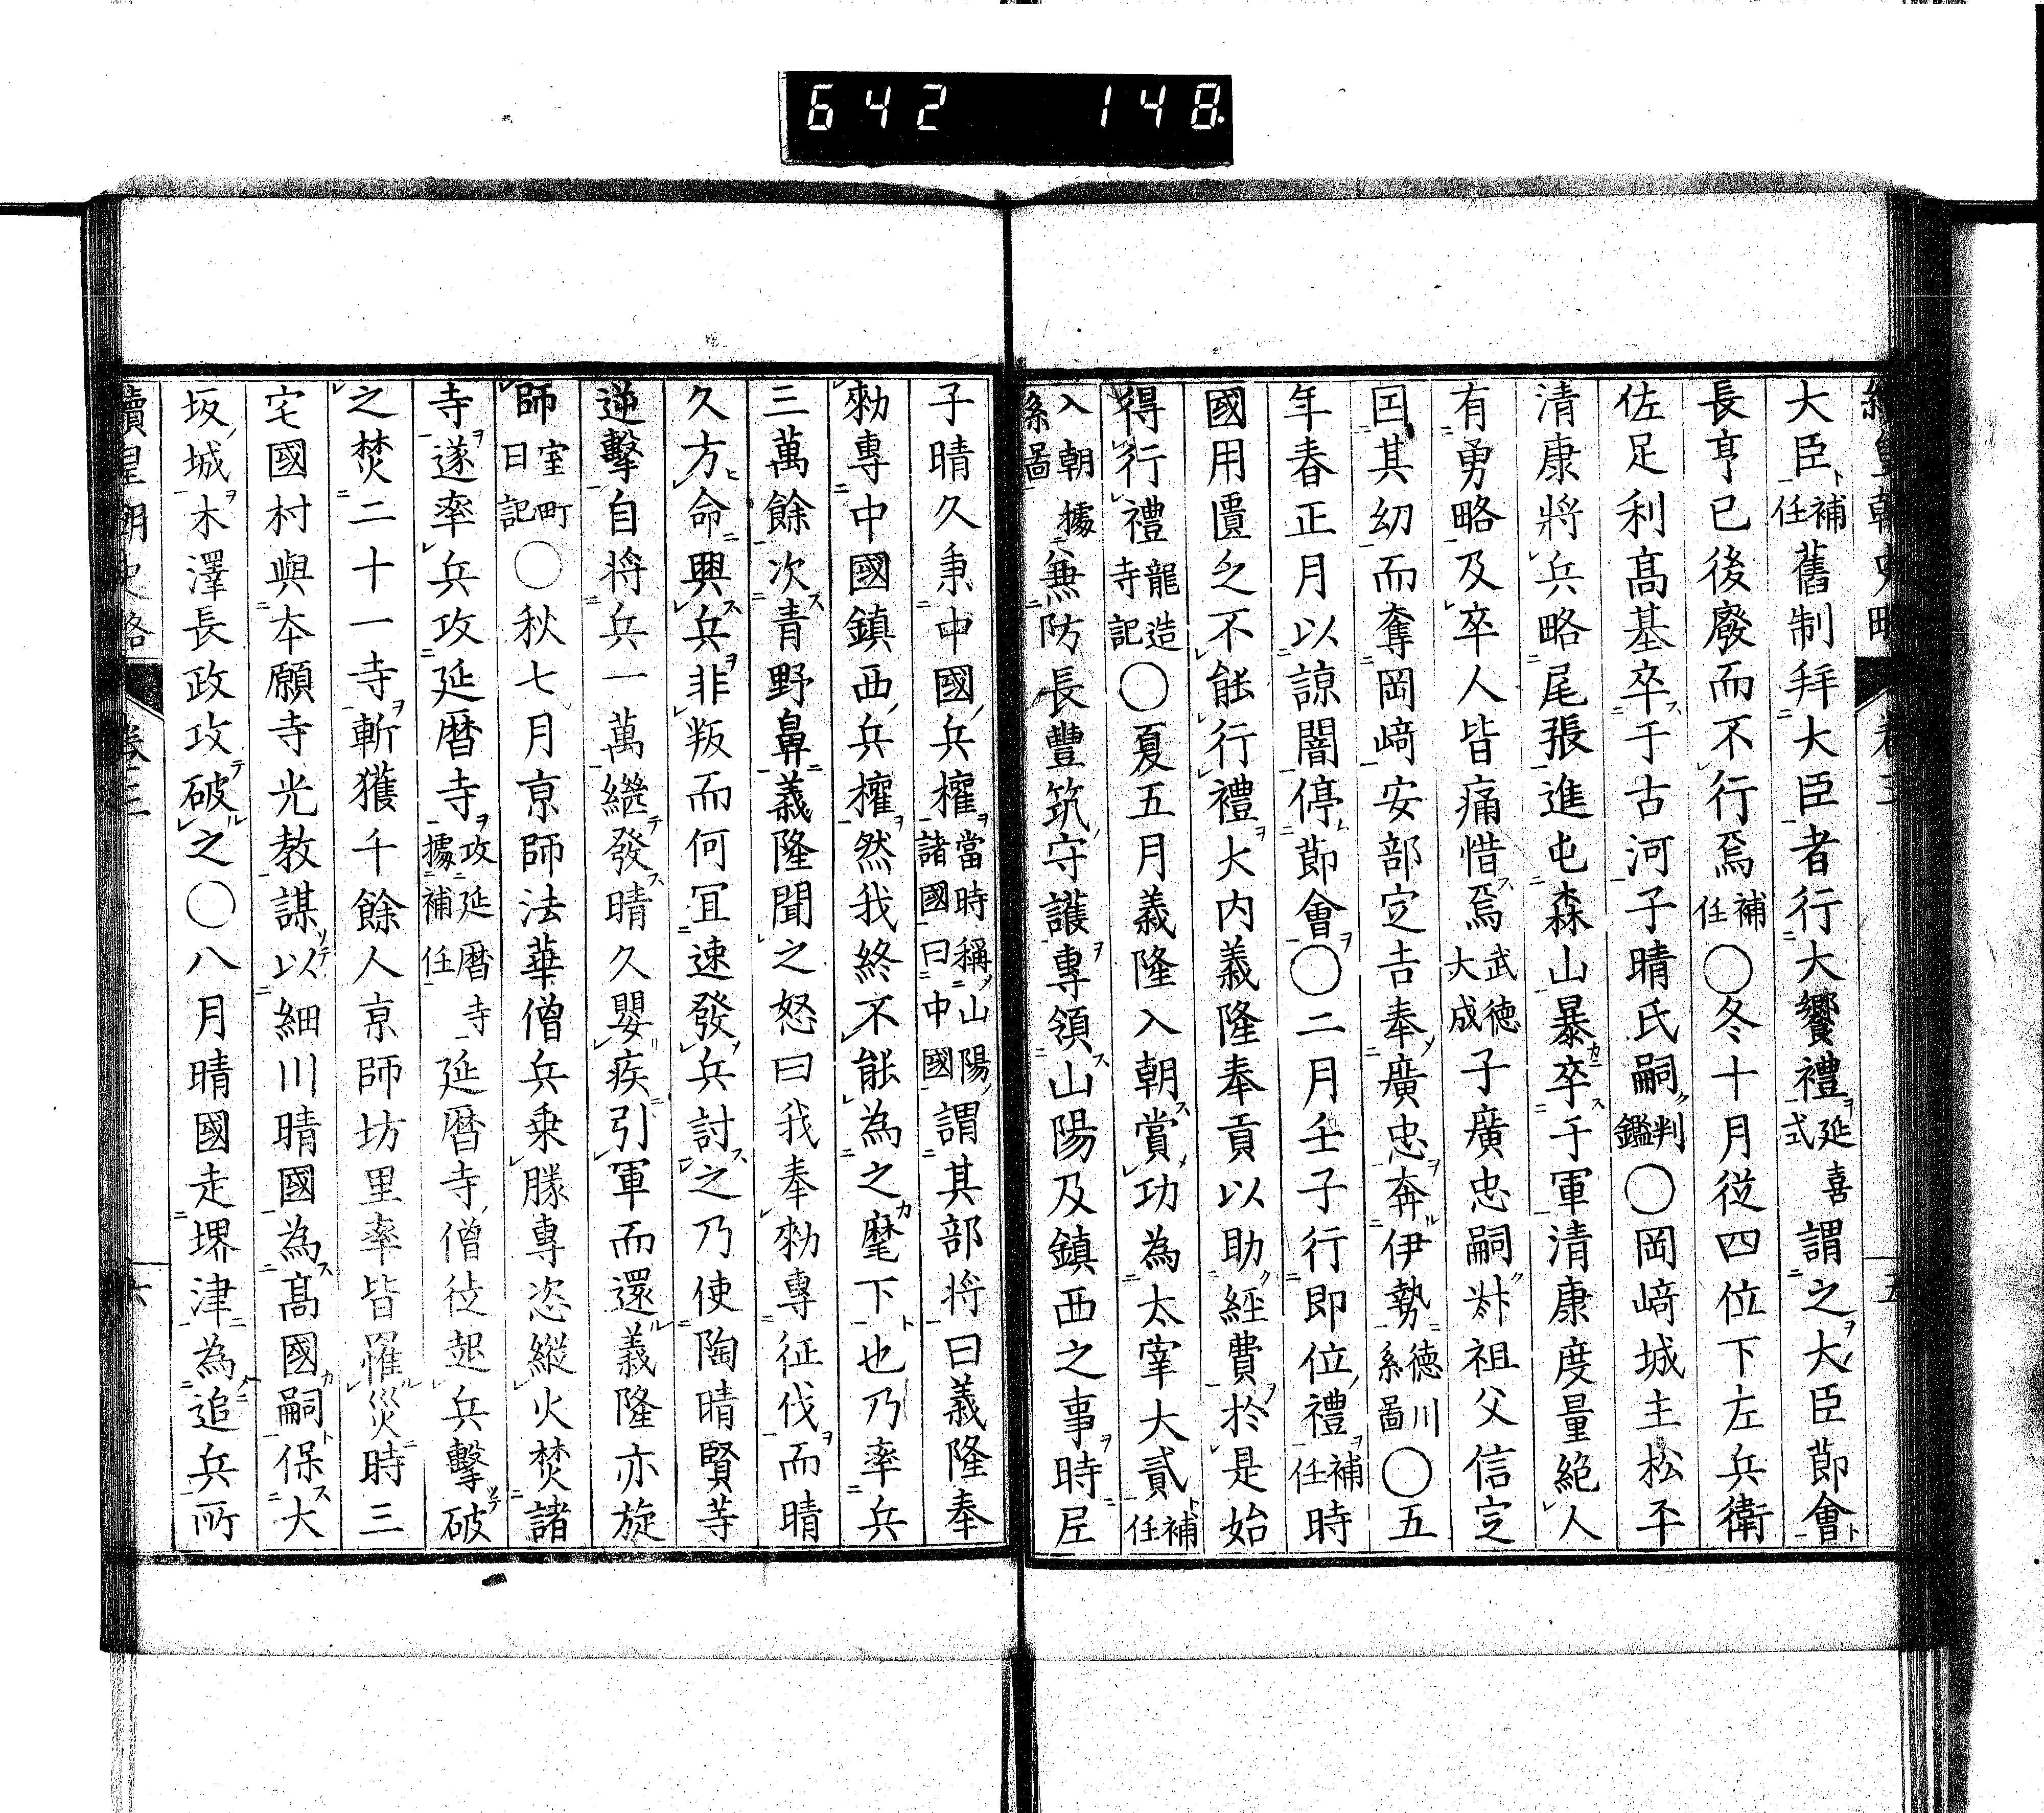 642 148.
大臣補任舊制拜大臣者行大饗禮延喜式謂之大臣節會
長亨已後廢而不行焉補任〇冬十月從四位下左兵衛
佐足利高基卒于古河子晴氏嗣判鑑〇岡﨑城主松平
清康將兵略尾張進屯森山暴卒于軍清康度量絕人
有勇略及卒人皆痛惜焉武德大成子廣忠嗣叔祖父信定
因其幼而奪岡﨑安部定吉奉廣忠奔伊勢德川系圖〇五
年春正月以諒闇停節會〇二月壬子行即位禮補任時
國用匱乏不能行禮大内義隆奉貢以助經費於是始
得行禮龍造寺記〇夏五月義隆入朝賞功為太宰大貳補任
入朝據系圖兼防長豐筑守護專領山陽及鎮西之事時尼
子晴久秉中國兵權當時稱山陽諸國曰中國謂其部將曰義隆奉
勑專中國鎮西兵權然我終不能為之麾下也乃率兵
三萬餘次青野鼻義隆聞之怒曰我奉勑專征伐而晴
久方命興兵非叛而何宜速發兵討之乃使陶晴賢等
逆擊自將兵一萬繼發晴久嬰疾引軍而還義隆亦旋
師室町日記〇秋七月京師法華僧兵乘勝專恣縱火焚諸
寺遂率兵攻延曆寺攻延曆寺據補任延曆寺僧徒起兵擊破
之焚二十一寺斬獲千餘人京師坊里率皆罹災時三
宅國村與本願寺光教謀以細川晴國為高國嗣保大
坂城木澤長政攻破之〇八月晴國走堺津為追兵所
續皇朝史略 卷三 六